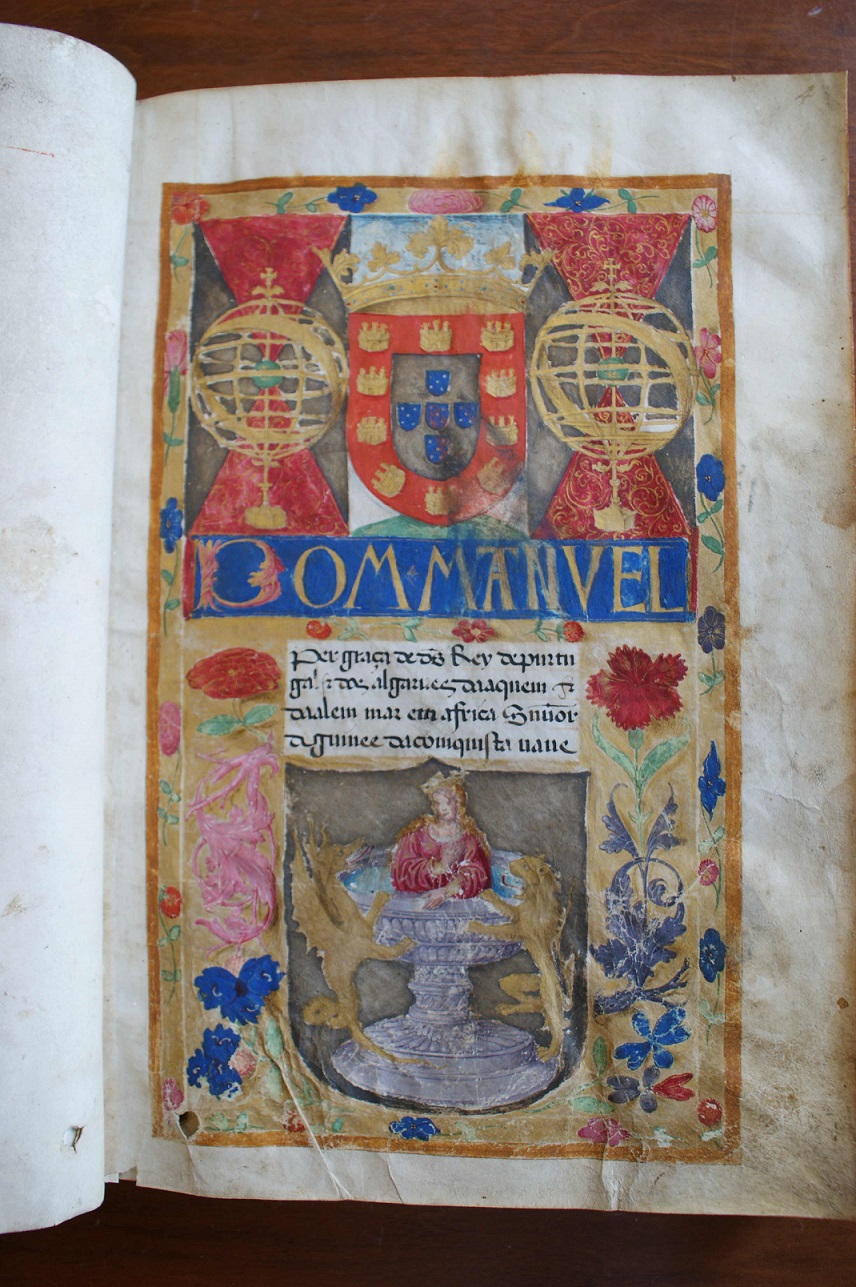 DOM·MANVEL
Per graça de d̃s Rey de purtu
gal ⁊ dos algarues daaquem ⁊
daalem mar em africa Snũor
de guinee da comquista naue